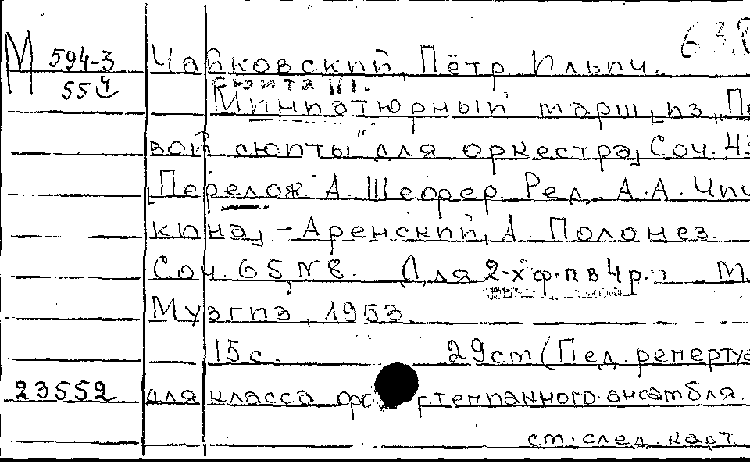 М 594-3 Чайковский, Пётр Ильич. 638
554 Сюита III.
Миниатюрный марш, из „Пер
вой сюиты" для оркестра, Соч. 43
Перелож. А. Шефер. Ред. А. А. Чич
кина, - Аренский, А. Полонез
Соч. 65, №8. Для 2-х ф.п. в 4 р. М.
Музгиз, 1953.
15 с. 29 cm (Пед. репертуа
23552 для класса фортепианного ансамбля.
см. след. карт.